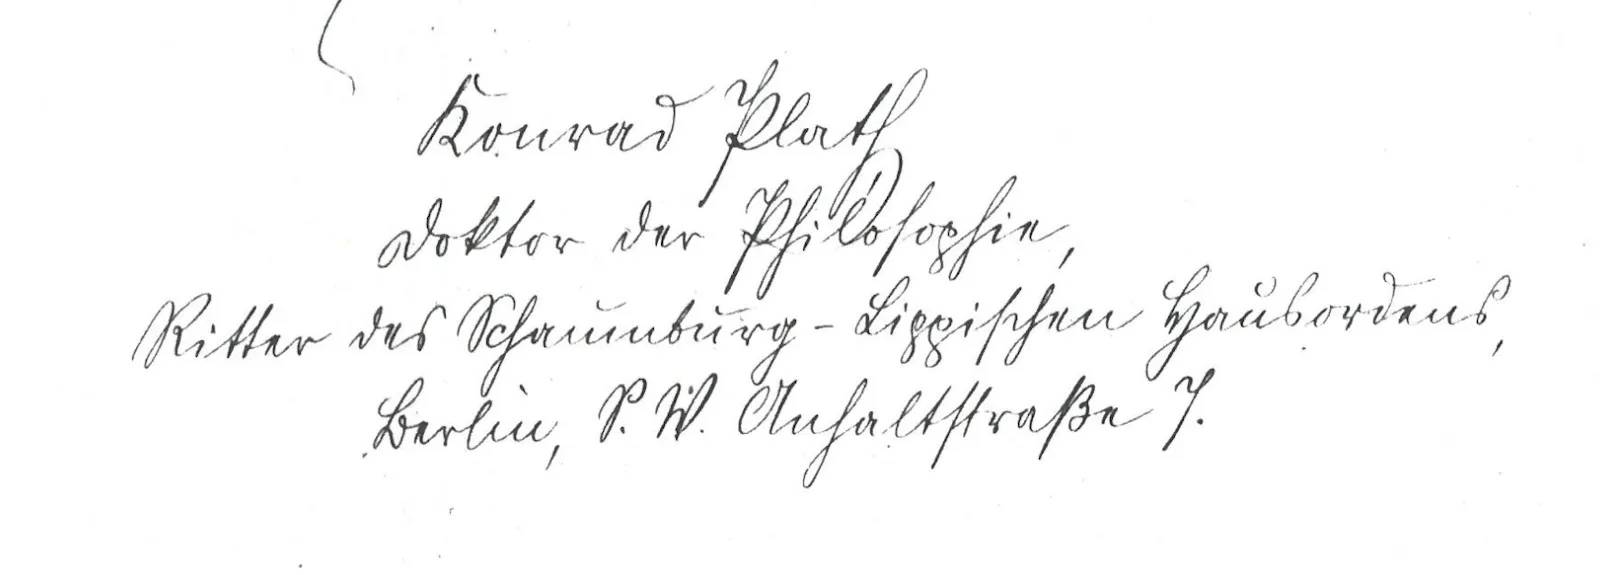 Konrad Plath
Doktor der Philosophie,
Ritter des Schaumburg-Lippischen Hausordens,
Berlin, S. W. Anhaltstraße 7.